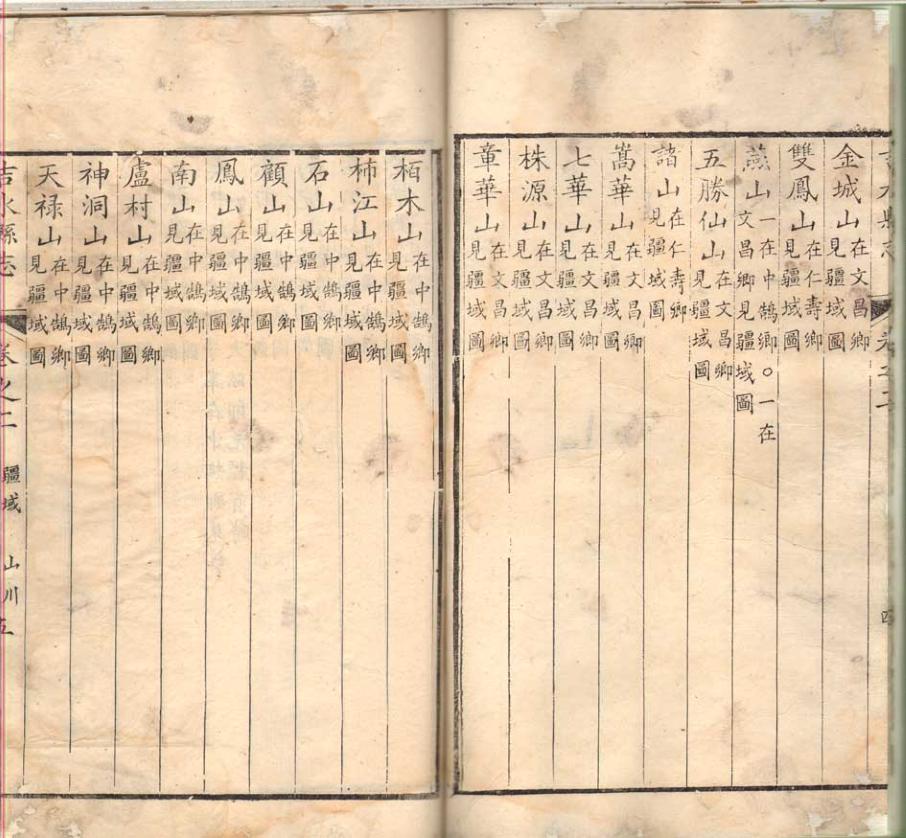 金城山在文昌鄉見疆域圖
雙鳳山在仁壽鄉見疆域圖
燕山一在中鵠鄉○一在文昌鄉見疆域圖
五勝仙山在文昌鄉見疆域圖
諸山在仁壽鄉見疆域圖
嵩華山在文昌鄉見疆域圖
七華山在文昌鄉見疆域圖
株源山在文昌鄉見疆域圖
章華山在文昌鄉見疆域圖
栢木山在中鵠鄉見疆域圖
柿江山在中鵠鄉見疆域圖
石山在中鵠鄉見疆域圖
顧山在中鵠鄉見疆域圖
鳳山在中鵠鄉見疆域圖
南山在中鵠鄉見疆域圖
盧村山在中鵠鄉見疆域圖
神洞山在中鵠鄉見疆域圖
天禄山在中鵠鄉見疆域圖
吉水縣志 卷之二 疆域 山川 五